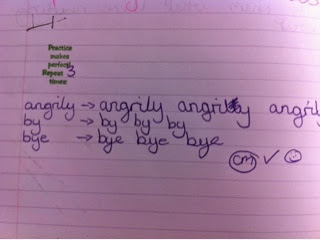 Practice
makes
perfect
Repeat 3
times
angrily → angrily angrily angril
by → by by by
bye → bye bye bye
cm ✓